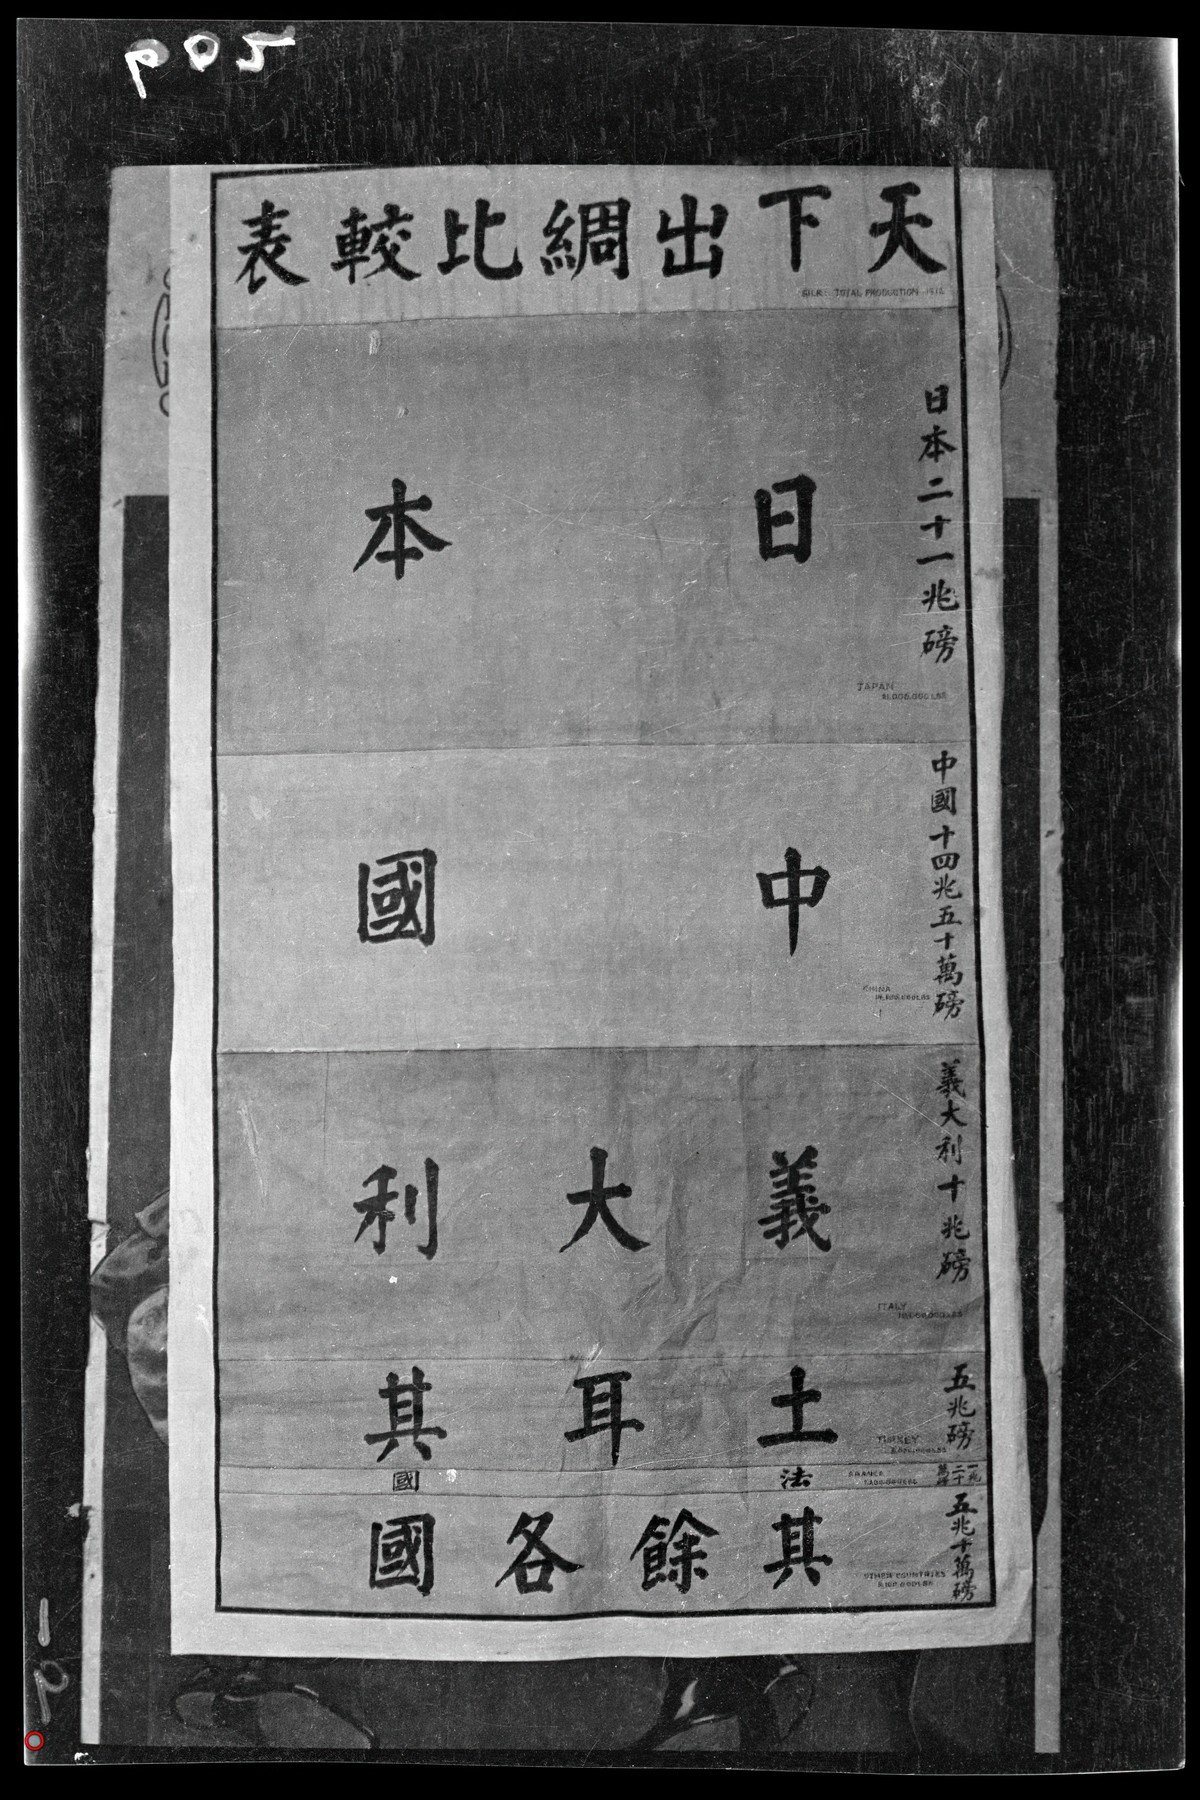 天下出綢比較表
SILK: TOTAL PRODUCTION
日本二十一兆磅
日本
JAPAN
21,000,000 LBS
中國十四兆五十萬磅
中國
CHINA
義大利十兆磅
義大利
ITALY
10,000,000 LBS
五兆磅
土耳其
TURKEY
5,000,000 LBS
一兆二十萬磅
FRANCE
法國
五兆十萬磅
其餘各國
OTHER COUNTRIES
5,100,000 LBS